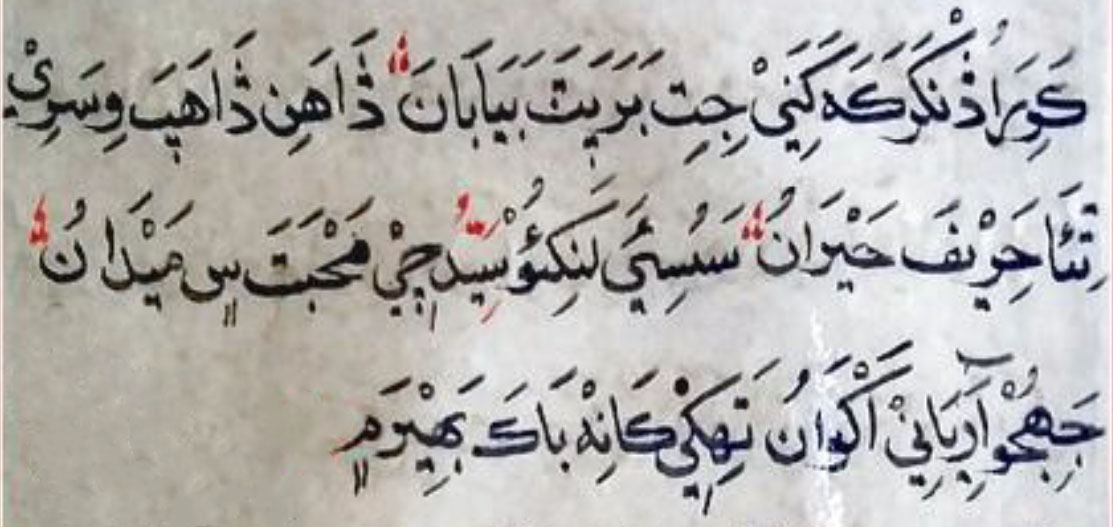 كَوِرَاُ ذْنكَرَ كَهَ كَنِيْ جِتِ بَرَپَتَ بَيَابَانَ ؞ ذَاهِن ذَاهِپَ وِسَرِيْ
تِتئَا حَرِيْفَ حَيْرَانُ ؞ سَسُئِيَ لَنكِئوُ سَيِّدُ چٖيْ مَحْبَتَ سٖ مَيْدَانُ ؞
جَهِجُوْ آرِيَانِيْ اَكْوَانُ تَهِکٖيْ كَانِهْ بَاكَ بَهِيْرَمٖ